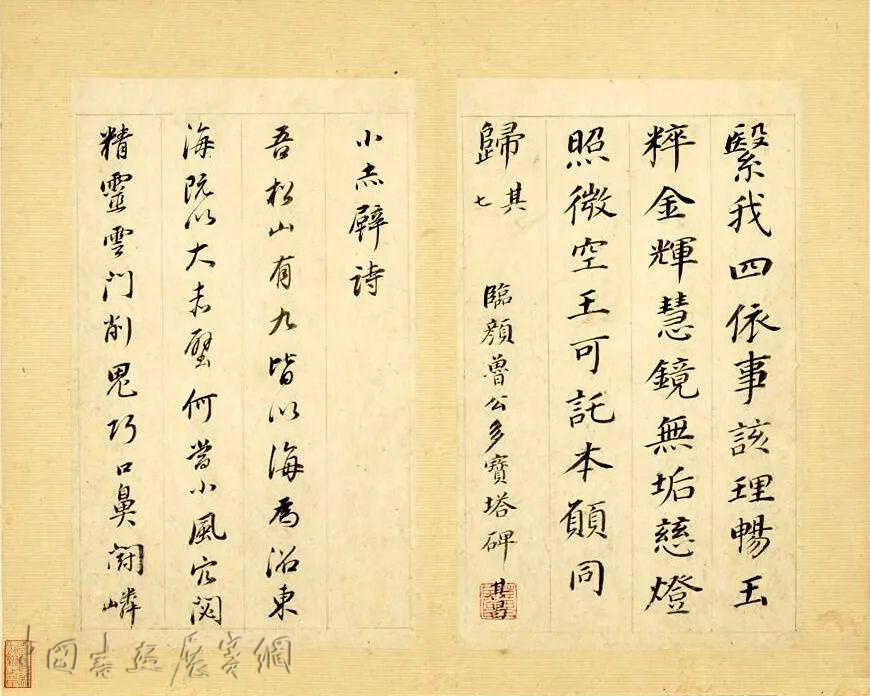 繄我四依事該理暢玉
粹金輝慧鏡無垢慈燈
照微空王可託本願同
歸其七 臨顏魯公多寶塔碑 其昌
小赤壁詩
吾松山有九皆以海為沼東
海既以大赤壁何當小風穴閟
精靈雲門削鬼巧口鼻嶙
中國書法展賽網